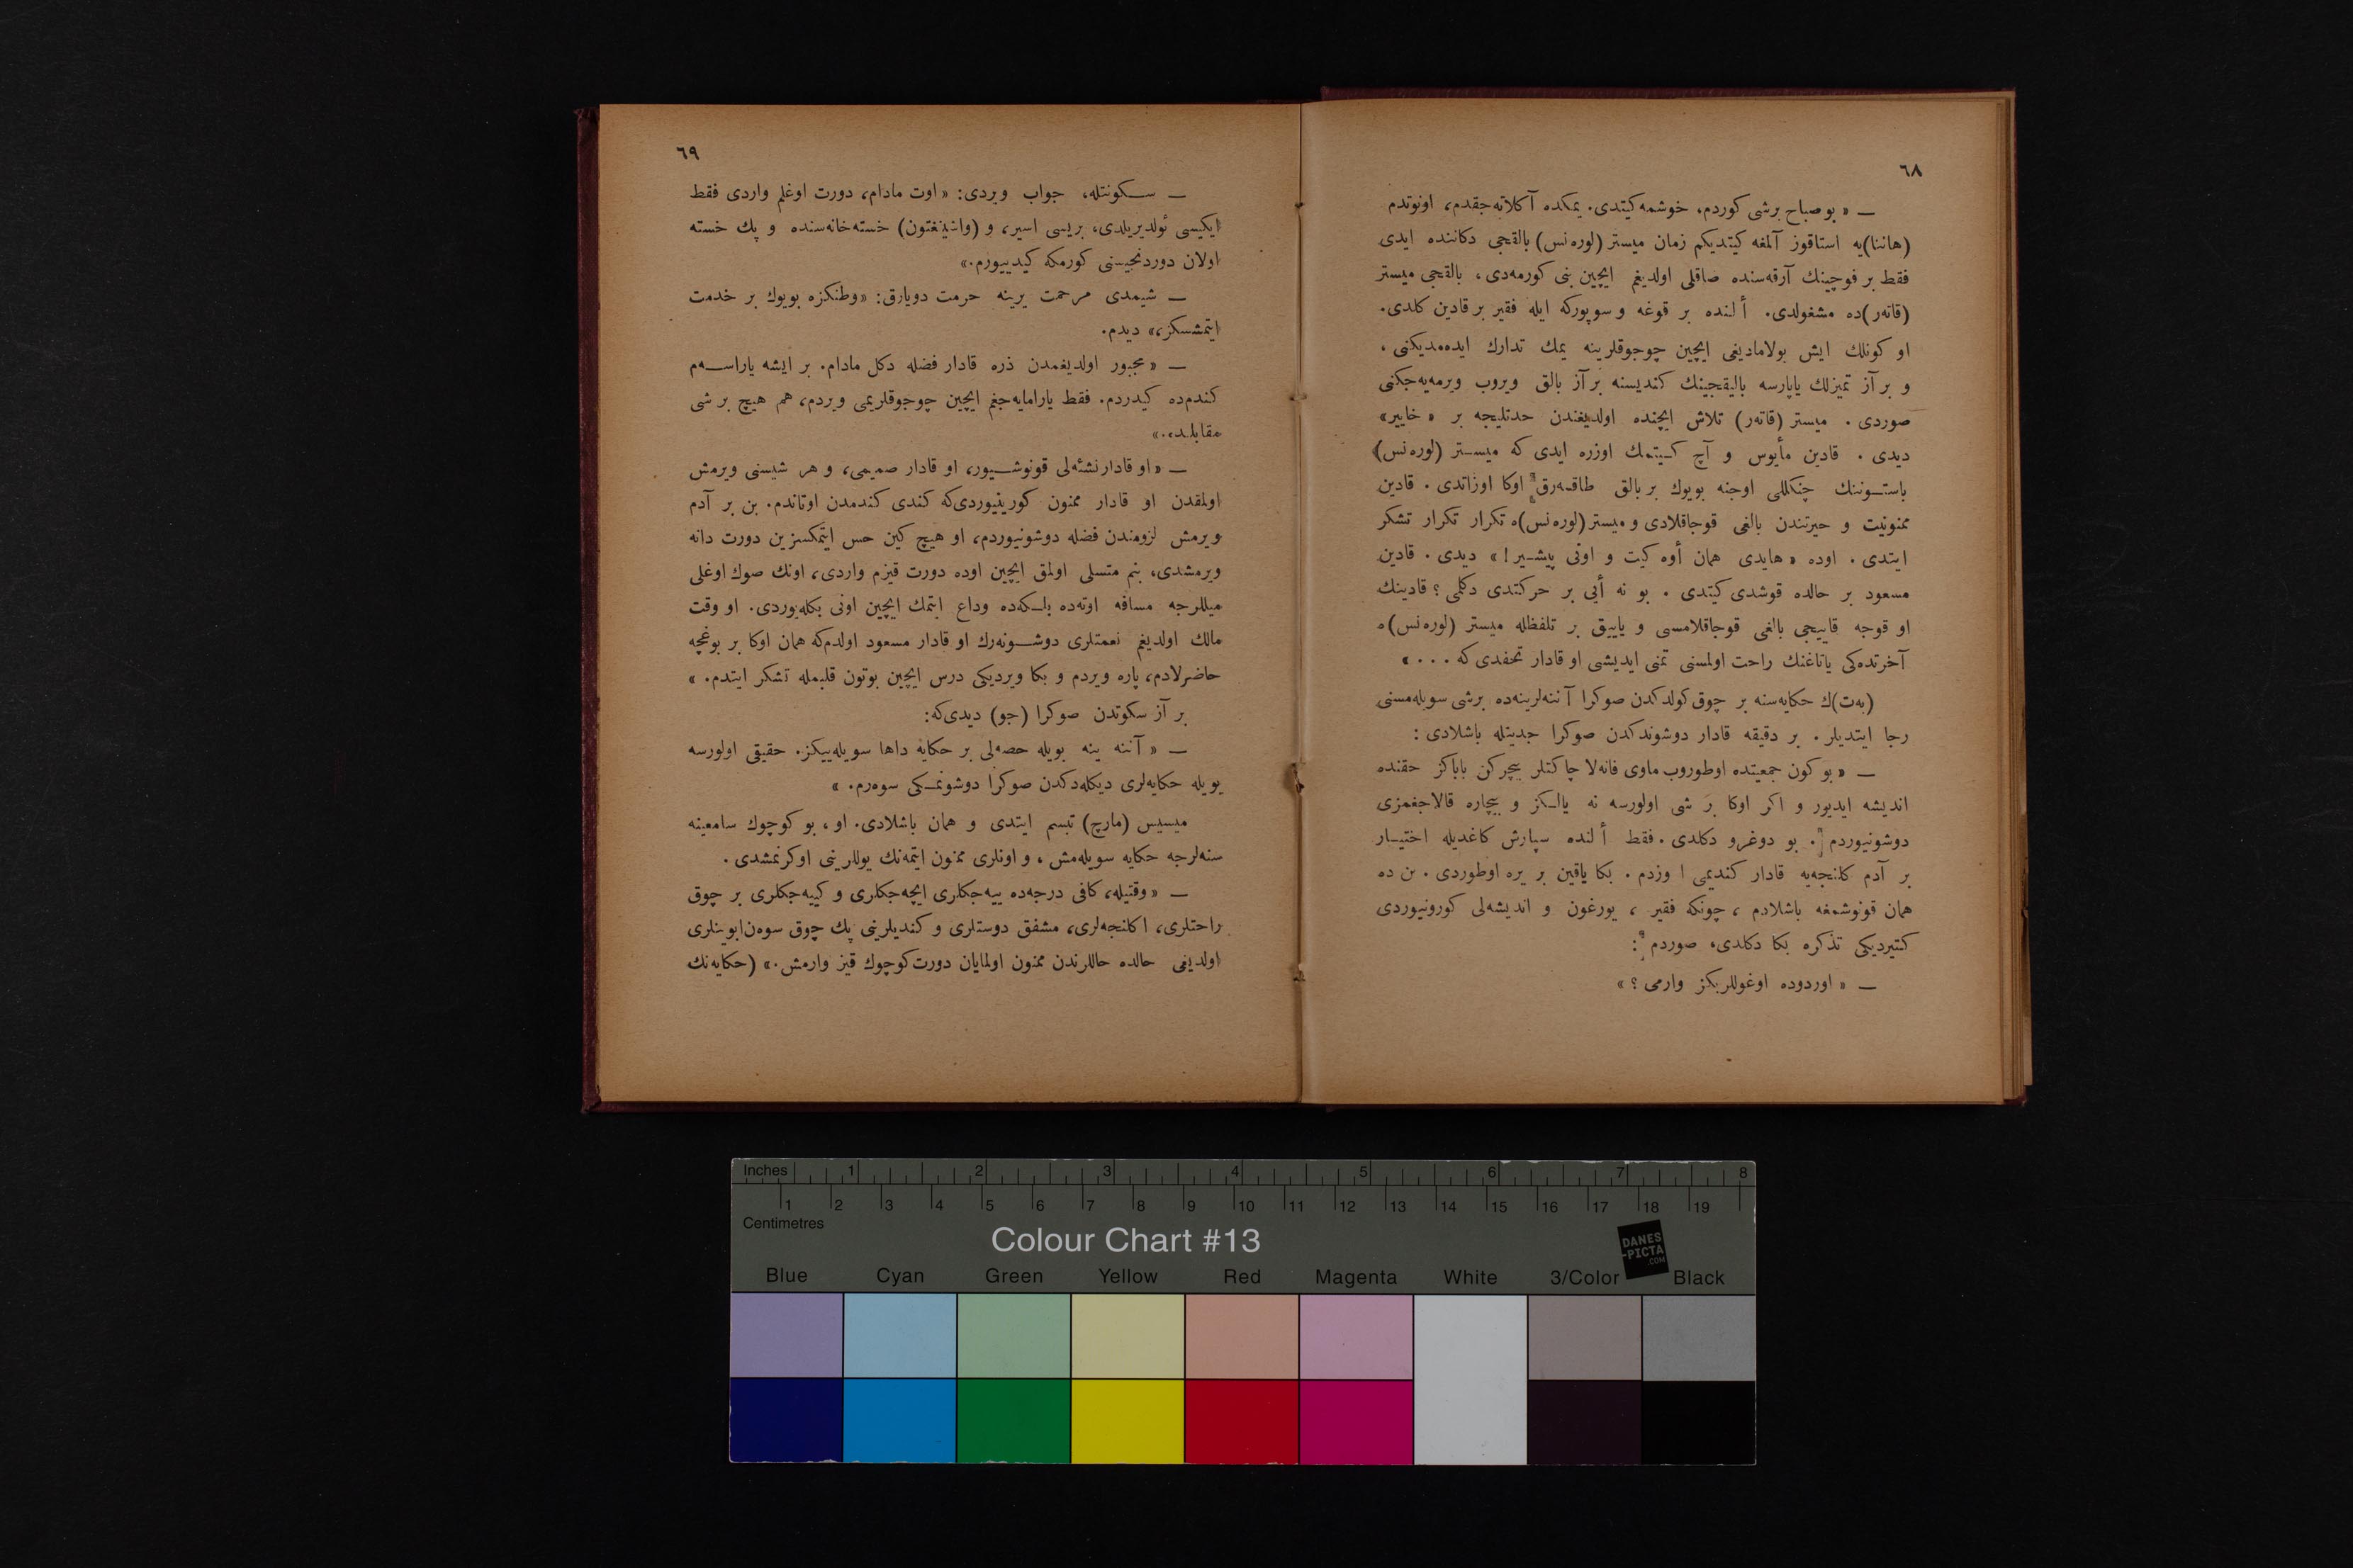 ٦٨
— « بو صباح برشی كوردم، خوشمه كیتدی. یمكده آكلاته‌جقدم، اونوتدم
(هاننا)یه استاقوز آلمغه كیتدیكم زمان میستر (لوره‌نس) بالقجی دكاننده ایدی
فقط بر فوچینك آرقه‌سنده صاقلی اولدیغم ایچین بنی كورمه‌دی، بالقجی میستر
(قاته‌ر)ده مشغولدی. ألنده بر قوغه و سوپوركه ایله فقیر بر قادین كلدی.
او كونلك ایش بولامادیغی ایچین چوجوقلرینه یمك تدارك ایده‌مدیكنی،
و بر آز تمیزلك یاپارسه بالیقجینك كندیسنه بر آز بالق ویروب ویرمه‌یه‌جكنی
صوردی. میستر (قاته‌ر) تلاش ایچنده اولدیغندن حدتلیجه بر « خاییر»
دیدی. قادین مأیوس و آچ كیتمك اوزره ایدی كه میستر (لوره‌نس)
باستوننك چنكللی اوجنه بویوك بر بالق طاقه‌رق اوكا اوزاتدی. قادین
ممنونیت و حیرتندن بالغی قوجاقلادی و میستر (لوره‌نس)ه تكرار تكرار تشكر
ایتدی. اوده « هایدی همان أوه كیت و اونی پیشیر! » دیدی. قادین
مسعود بر حالده قوشدی كیتدی. بو نه أیی بر حركتدی دكلمی؟ قادینك
او قوجه قاییجی بالغی قوجاقلامسی و یاییق بر تلفظله میستر (لوره‌نس)ه
آخرتده‌كی یاتاغنك راحت اولمسنی تمنی ایدیشی او قادار تحفدی كه . . . »
(به‌ت)ك حكایه‌سنه بر چوق كولدكدن صوكرا آننه‌لرینه‌ده برشی سویله‌مسنی
رجا ایتدیلر. بر دقیقه قادار دوشوندكدن صوكرا جدیتله باشلادی:
— « بو كون جمعیتده اوطوروب ماوی فانه‌لا چاكتلر بیچركن باباكز حقنده
اندیشه ایدیور و اكر اوكا بر شی اولورسه نه یالكز و بیچاره قالاجغمزی
دوشونیوردم. بو دوغرو دكلدی. فقط ألنده سپارش كاغدیله اختیار
بر آدم كلنجه‌یه قادار كندیمی اوزدم. بكا یاقین بر یره اوطوردی. بن ده
همان قونوشمغه باشلادم، چونكه فقیر، یورغون و اندیشه‌لی كورونیوردی
كتیردیكی تذكره بكا دكلدی، صوردم:
— « اوردوده اوغوللریكز وارمی؟ »
٦٩
— سكونتله، جواب ویردی: « اوت مادام، دورت اوغلم واردی فقط
ایكیسی ئولدیریلدی، بریسی اسیر، و (واشینغتون) خسته‌خانه‌سنده و پك خسته
اولان دوردنجیسنی كورمكه كیدییورم.»
— شیمدی مرحمت یرینه حرمت دویارق: «وطنكزه بویوك بر خدمت
ایتمشسكز،» دیدم.
— « مجبور اولدیغمدن ذره قادار فضله دكل مادام. بر ایشه یاراسه‌م
كندم‌ده كیدردم. فقط یارامایه‌جغم ایچین چوجوقلریمی ویردم، هم هیچ بر شی
مقابلنده.»
— « او قادار نشئه‌لی قونوشیور، او قادار صمیمی، و هر شیسنی ویرمش
اولمقدن او قادار ممنون كورینیوردی‌كه كندی كندمدن اوتاندم. بن بر آدم
ویرمش لزومندن فضله دوشونیوردم، او هیچ كین حس ایتمكسزین دورت دانه
ویرمشدی، بنم متسلی اولمق ایچین اوده دورت قیزم واردی، اونك صوك اوغلی
میللرجه مسافه اوته‌ده بلكه‌ده وداع ایتمك ایچین اونی بكله‌یوردی. او وقت
مالك اولدیغم نعمتلری دوشونه‌رك او قادار مسعود اولدم‌كه همان اوكا بر بوغچه
حاضرلادم، پاره ویردم و بكا ویردیكی درس ایچین بوتون قلبمله تشكر ایتدم. »
بر آز سكوتدن صوكرا (جو) دیدی‌كه:
— « آننه ینه بویله حصه‌لی بر حكایه داها سویله‌ییكز. حقیقی اولورسه
بویله حكایه‌لری دیكله‌دكدن صوكرا دوشونمكی سوه‌رم. »
میسیس (مارچ) تبسم ایتدی و همان باشلادی. او، بو كوچوك سامعینه
سنه‌لرجه حكایه سویله‌مش، و اونلری ممنون ایتمه‌نك یوللرینی اوكرنمشدی.
— « وقتیله، كافی درجه‌ده ییه‌جكلری ایچه‌جكلری و كییه‌جكلری بر چوق
راحتلری، اكلنجه‌لری، مشفق دوستلری و كندیلرینی پك چوق سوه‌ن ابوینلری
اولدیغی حالده حاللرندن ممنون اولمایان دورت كوچوك قیز وارمش.» (حكایه‌نك
Inches 1 2 3 4 5 6 7 8
1 2 3 4 5 6 7 8 9 10 11 12 13 14 15 16 17 18 19
Centimetres
Colour Chart #13
DANES
-PICTA
.COM
Blue Cyan Green Yellow Red Magenta White 3/Color Black